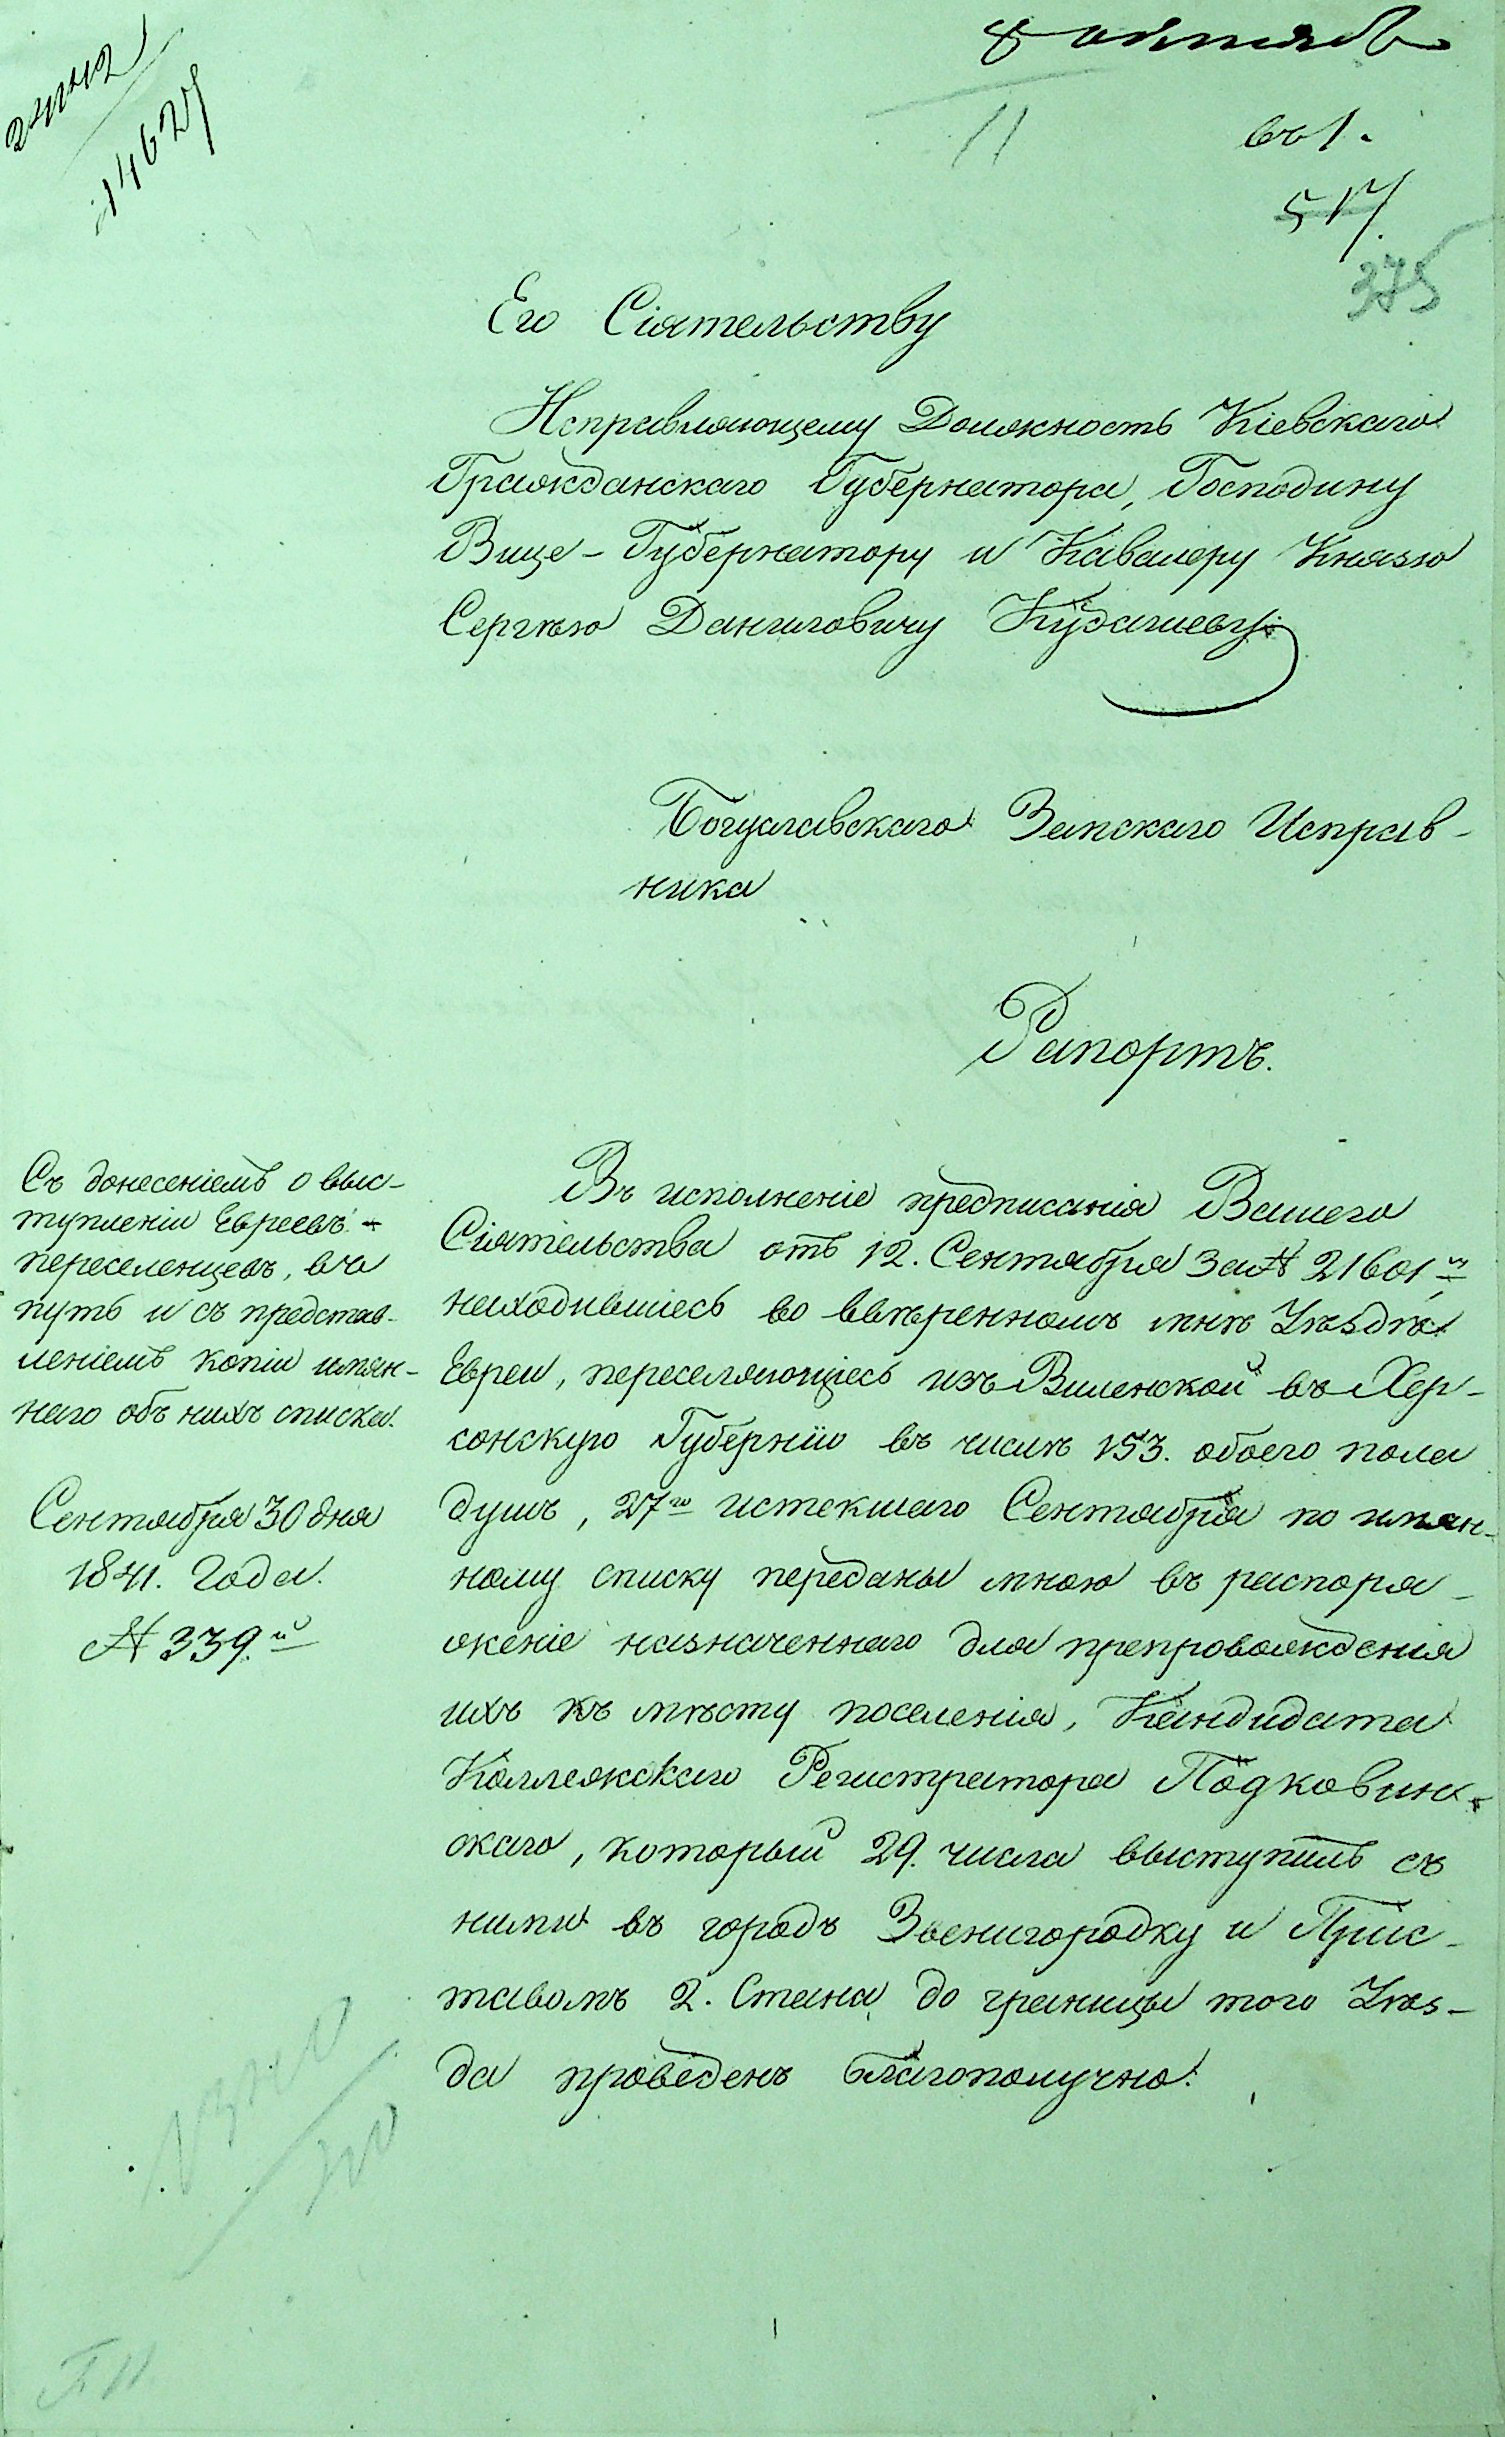 14627
8 октяб
11
въ 1.
517.
375
Его Сіятельству
Исправляющему Должность Кіевскаго
Гражданскаго Губернатора, Господину
Вице-Губернатору и Кавалеру Князю
Сергѣю Даниловичу Кудашеву.
Богуславскаго Земскаго Исправ-
ника
Рапортъ.
Съ донесеніемъ о выс-
тупленіи Евреевъ -
переселенцевъ, въ
путь и съ представ-
леніемъ копіи имян-
наго объ нихъ списка.
Сентября 30 дня
1841. Года.
№ 339.й
Въ исполненіе предписанія Вашего
Сіятельства отъ 12. Сентября за № 21601м
находившіесь во ввѣренномъ мнѣ Уѣздѣ
Евреи, переселяющіесь изъ Виленской въ Хер-
сонскую Губернію въ числѣ 153. обоего пола
душъ, 27го истекшаго Сентября по имян-
ному списку переданы мною въ распоря-
женіе назначеннаго для препровожденія
ихъ къ мѣсту поселенія, Кандидата
Коллежскаго Регистратора Подковин-
скаго, который 29. числа выступилъ съ
ними въ городъ Звенигородку и Прис-
тавомъ 2. Стана до границы того Уѣз-
да проведенъ благополучно.